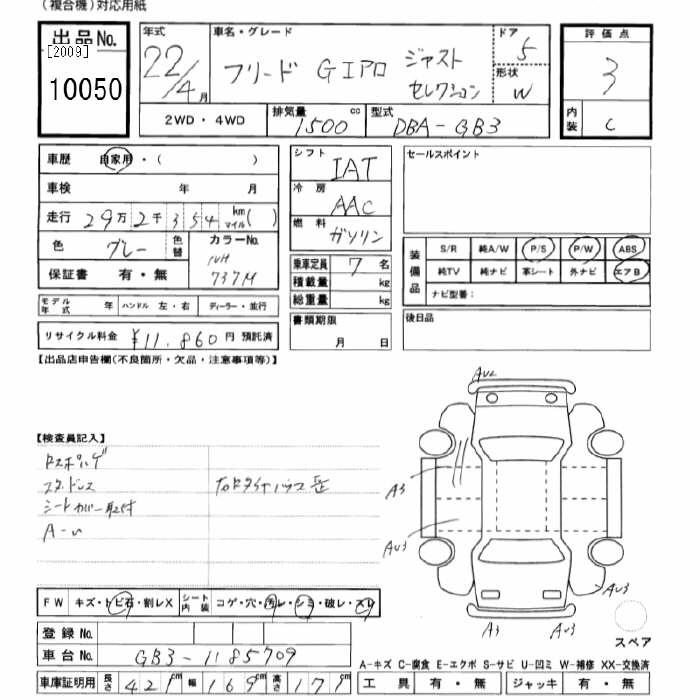 (複合機)対応用紙
出品No. [2009] 10050
年式 22/4月
車名・グレード フリード GIプロ ジャスト セレクション
ドア 5
形状 W
評価点 3
内装 C
2WD・4WD
排気量 1500 cc
型式 DBA-GB3
車歴 自家用・( )
車検 年 月
走行 29万2千354 km マイル( )
色 グレー 色替
カラーNo. NH 737M
保証書 有・無
モデル年式 年 ハンドル 左・右 ディーラー・並行
リサイクル料金 ¥11,860円 預託済
シフト IAT
冷房 AAC
燃料 ガソリン
乗車定員 7名
積載量 kg
総重量 kg
書類期限 月 日
セールスポイント
装備品 S/R 純A/W P/S P/W ABS
純TV 純ナビ 革シート 外ナビ エアB
ナビ型番:
後日品
【出品店申告欄(不良箇所・欠品・注意事項等)】
【検査員記入】
スタッドレス
シートカバー取付
A-U
AU2
A3
AU3
AU3
A3
AU3
スペア
FW キズ・トビ石・割レX シート内装 コゲ・穴・汚レ・シミ・破レ・スレ
登録No.
車台No. GB3-1185709
A-キズ C-腐食 E-エクボ S-サビ U-凹ミ W-補修 XX-交換済
車庫証明用 長さ 421cm 幅 169cm 高さ 171cm
工具 有・無 ジャッキ 有・無